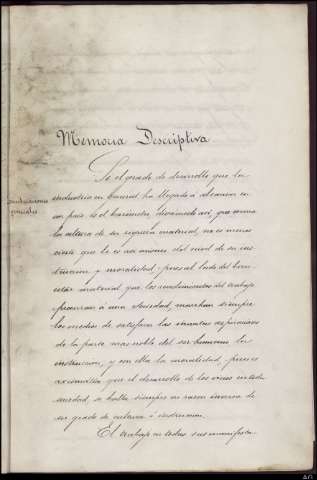 Memoria Descriptiva.
Consideraciones
generales
Si el grado de desarrollo que la
industria en general ha llegado á alcanzar en
un pais, es el barómetro, digamoslo así, que marca
la altura de su riqueza material, no es menos
cierto que lo es asi mismo del nivel de su ins-
truccion y moralidad, pues al lado del bien-
estar material que los rendimientos del trabajo
procuran á una sociedad, marchan siempre
los medios de satisfacer las innatas aspiraciones
de la parte mas noble del ser humano la
instruccion, y con ella la moralidad, pues es
axiomático que el desarrollo de los vicios en toda
sociedad, se halla siempre en razon inversa de
su grado de cultura é instruccion.
El trabajo en todas sus manifesta-